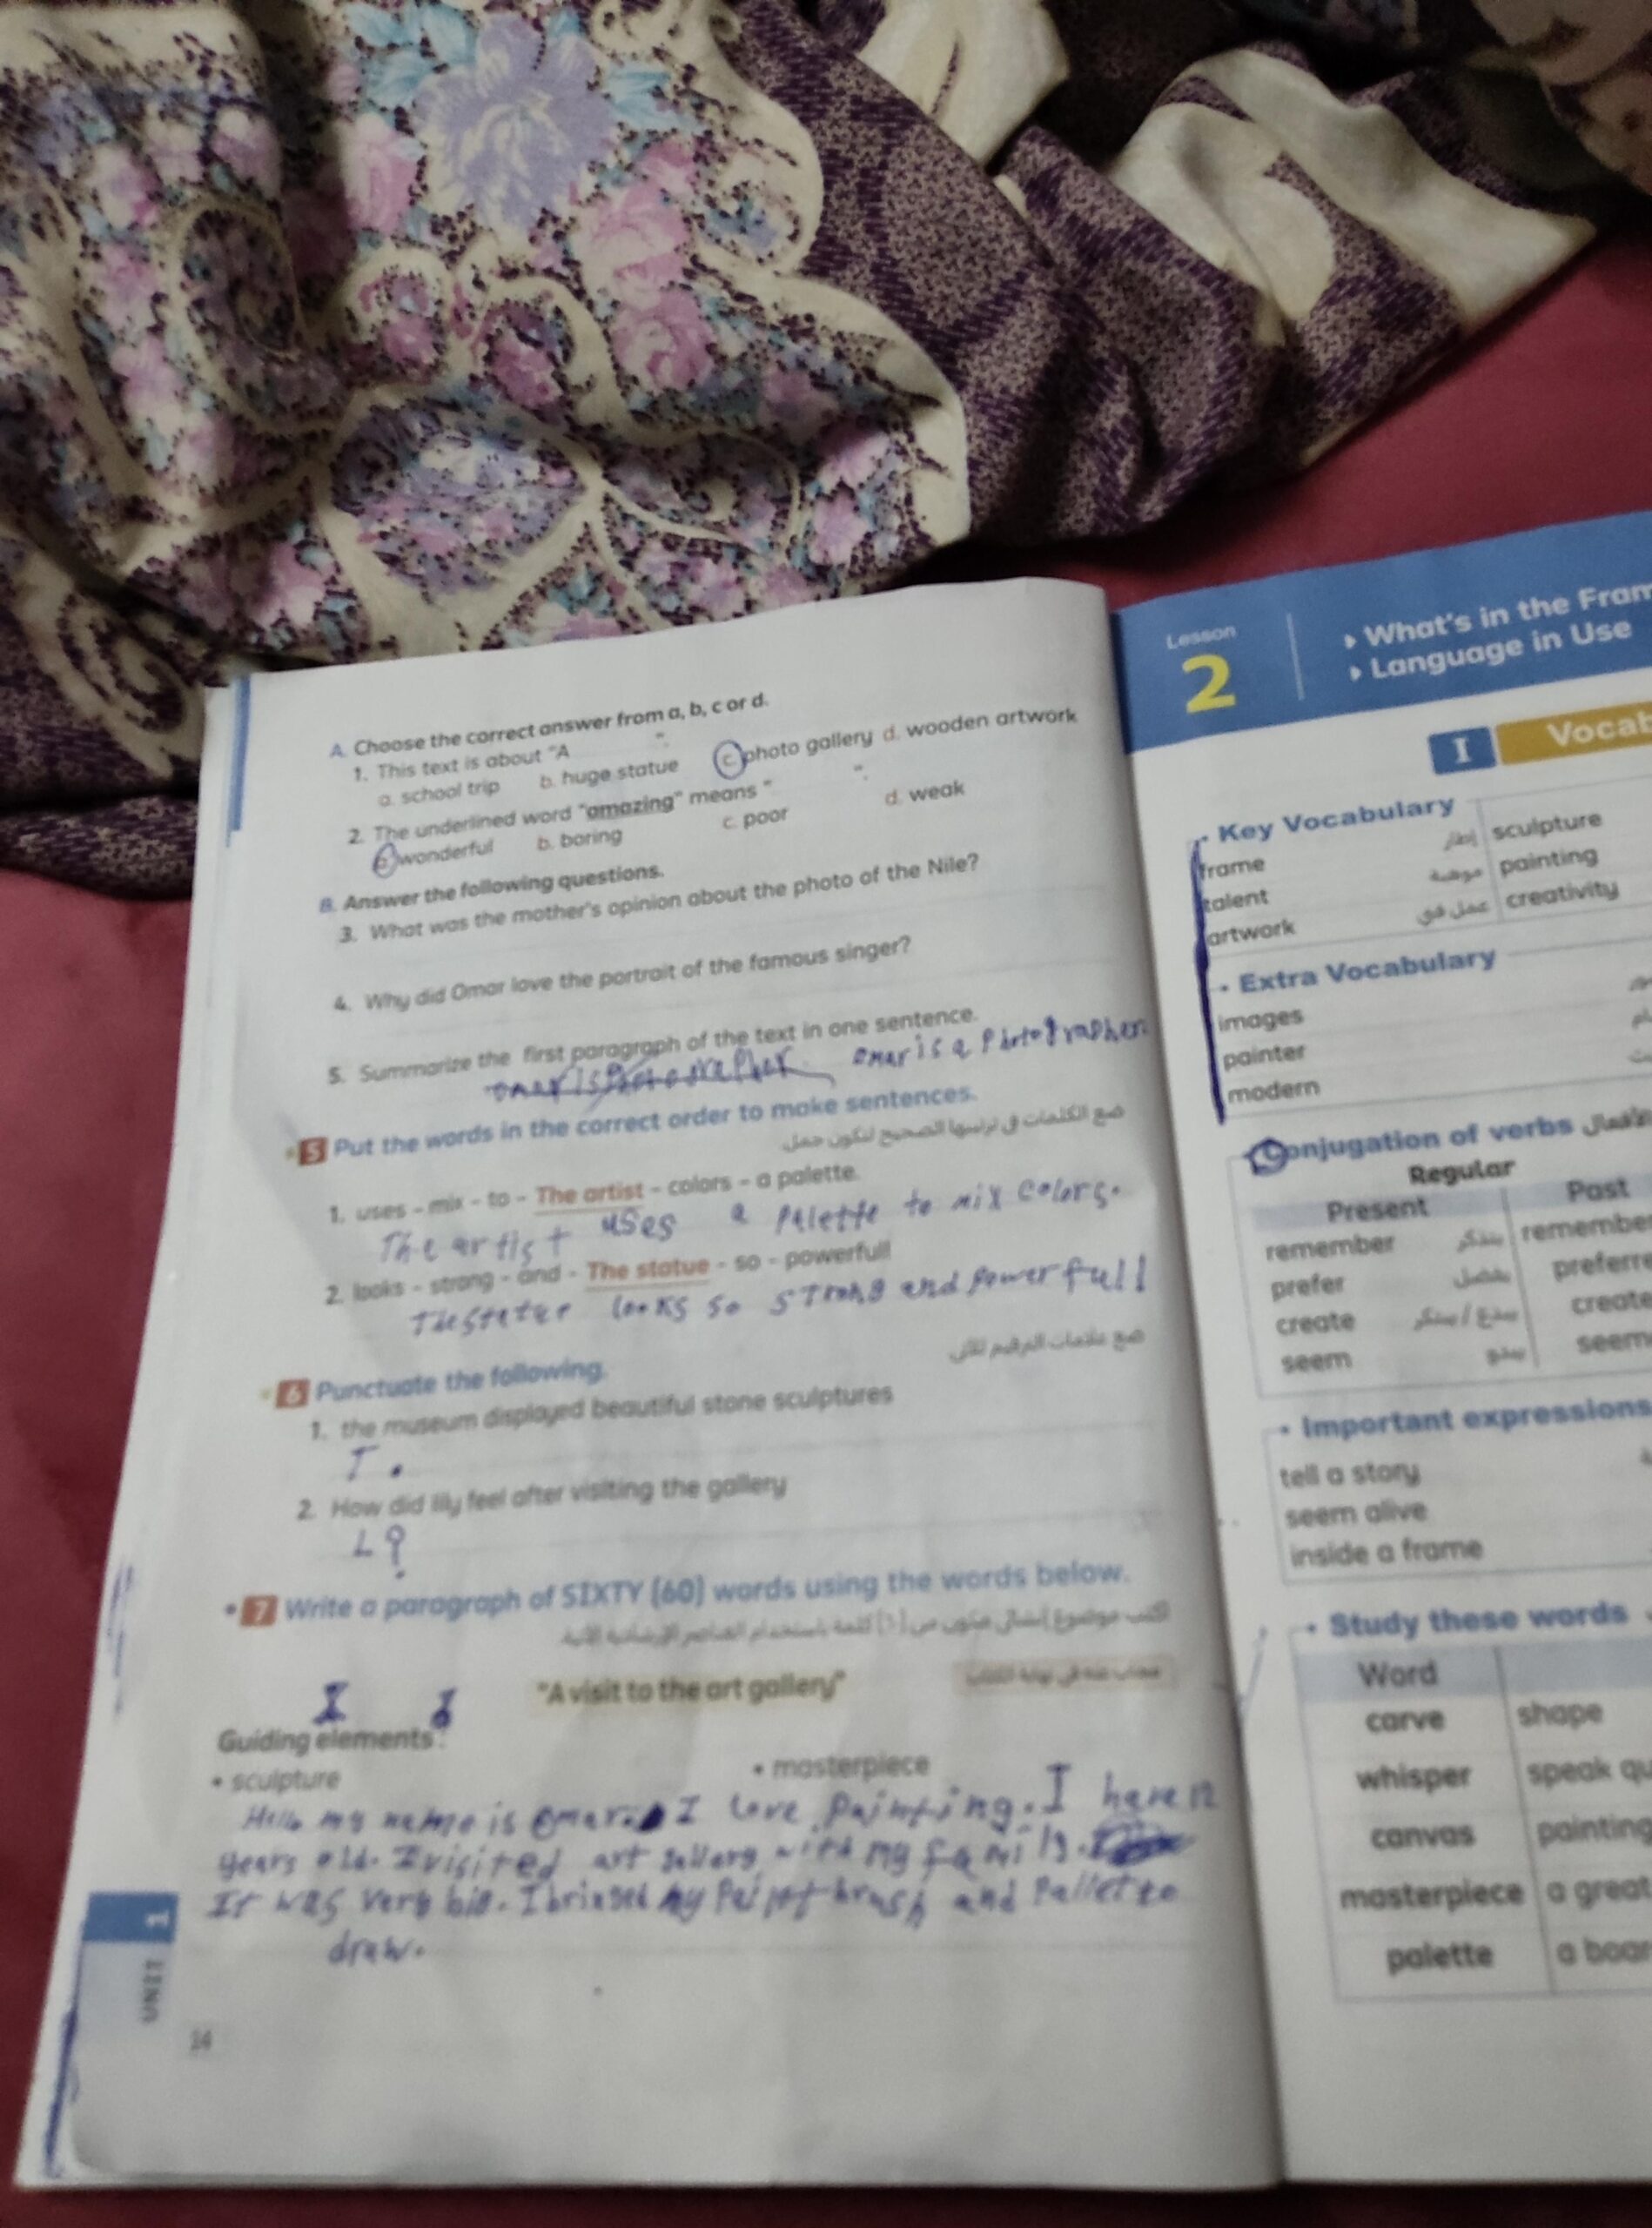 A. Choose the correct answer from a, b, c or d.
1. This text is about "A ".
a. school trip b. huge statue c. photo gallery d. wooden artwork
2. The underlined word "amazing" means " ".
a. wonderful b. boring c. poor d. weak
B. Answer the following questions.
3. What was the mother's opinion about the photo of the Nile?
4. Why did Omar love the portrait of the famous singer?
5. Summarize the first paragraph of the text in one sentence.
omar is a Photographer.
5 Put the words in the correct order to make sentences.
ضع الكلمات في ترتيبها الصحيح لتكون جمل
1. uses - mix - to - The artist - colors - a palette.
The artist uses a Palette to mix colors.
2. looks - strong - and - The statue - so - powerful!
looks so strong and Powerfull
6 Punctuate the following.
ضع علامات الترقيم
1. the museum displayed beautiful stone sculptures
T .
2. How did lily feel after visiting the gallery
L ?
7 Write a paragraph of SIXTY (60) words using the words below.
"A visit to the art gallery"
Guiding elements:
• sculpture • masterpiece
Hello my name is omar. I love Painting. I have 12
years old. I visited art gallery with my family.
It was very big. I bringed my Paint brush and Pallet to
draw.
UNIT 1
14
Lesson
2
What's in the Fram
Language in Use
I Vocab
• Key Vocabulary
frame إطار sculpture
talent موهبة painting
artwork عمل فني creativity
• Extra Vocabulary
images
painter
modern
Conjugation of verbs
Regular
Present Past
remember يتذكر remember
prefer يفضل preferre
create يبدع / يبتكر create
seem يبدو seem
• Important expressions
tell a story
seem alive
inside a frame
• Study these words
Word
carve shape
whisper speak qu
canvas painting
masterpiece a great
palette a boar